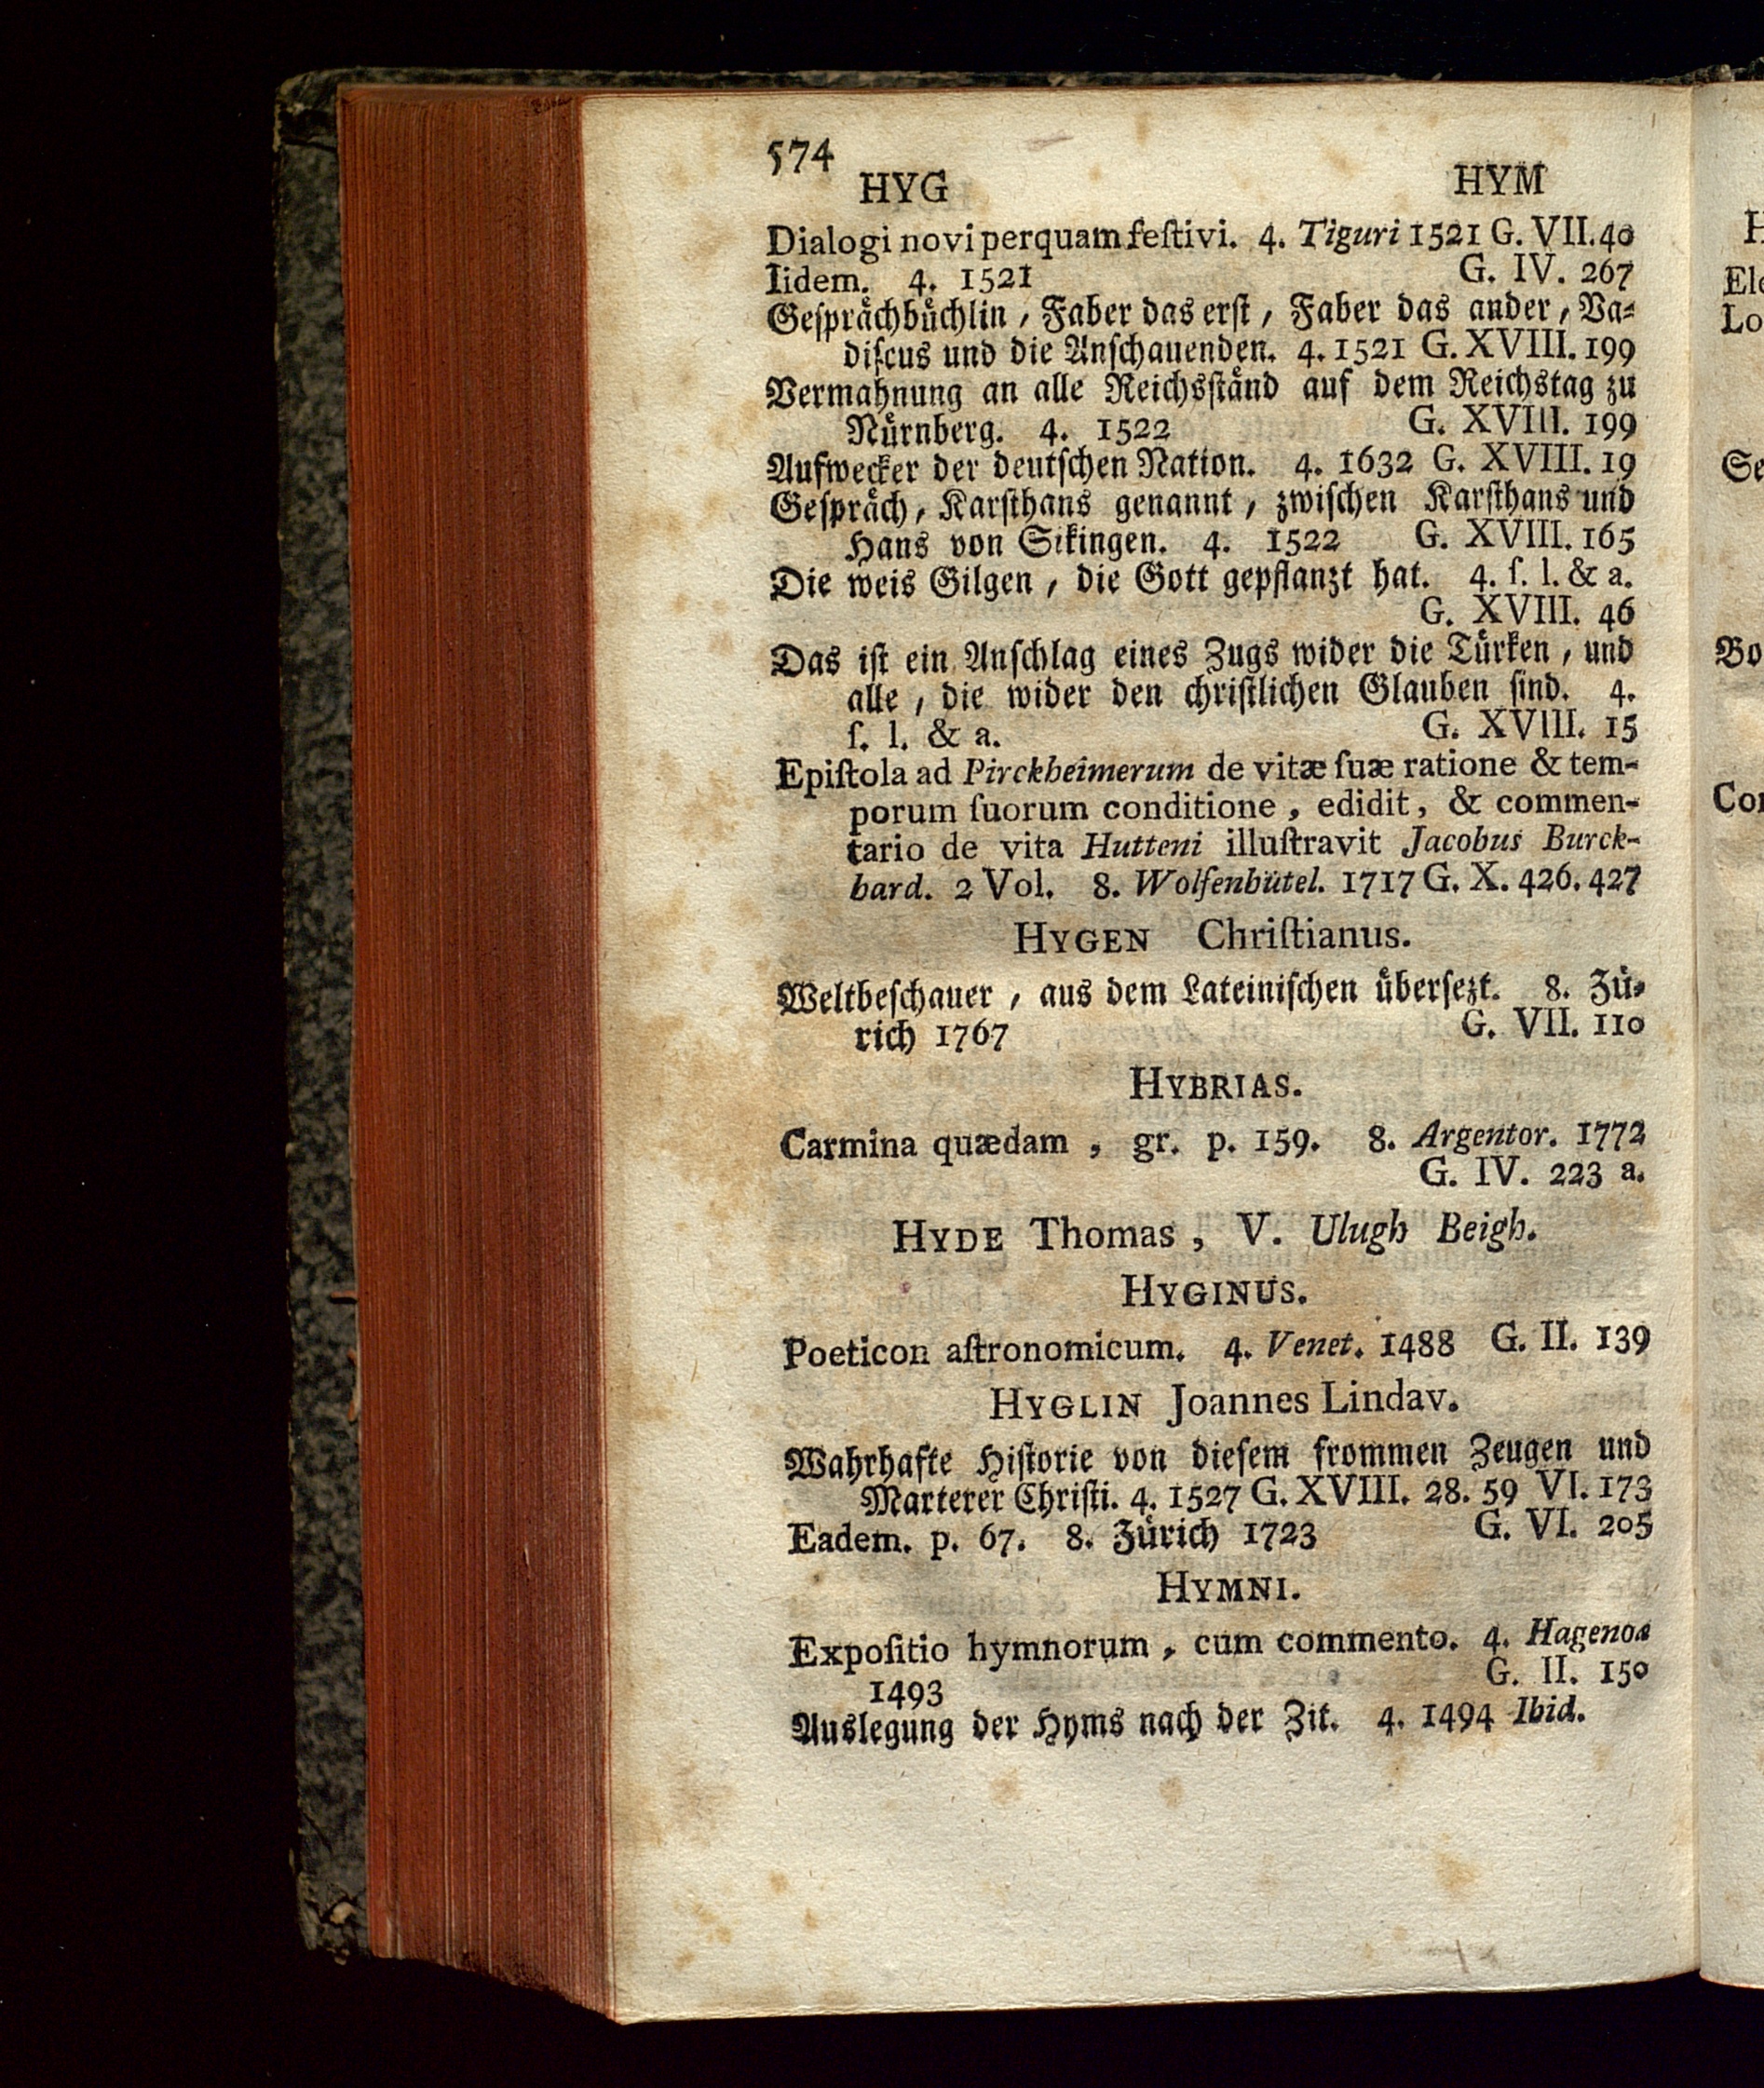 574
HYG HYM
Dialogi novi perquam feſtivi. 4. Tiguri 1521 G. VII. 40
Iidem. 4. 1521 G. IV. 267
Geſpraͤchbuͤchlin, Faber das erſt, Faber das ander, Va-
diſcus und die Anſchauenden. 4. 1521 G. XVIII. 199
Vermahnung an alle Reichsſtaͤnd auf dem Reichstag zu
Nuͤrnberg. 4. 1522 G. XVIII. 199
Aufwecker der deutſchen Nation. 4. 1632 G. XVIII. 19
Geſpraͤch, Karſthans genannt, zwiſchen Karſthans und
Hans von Sikingen. 4. 1522 G. XVIII. 165
Die weis Gilgen, die Gott gepflanzt hat. 4. ſ. l. & a.
G. XVIII. 46
Das iſt ein Anſchlag eines Zugs wider die Tuͤrken, und
alle, die wider den chriſtlichen Glauben ſind. 4.
ſ. l. & a. G. XVIII. 15
Epiſtola ad Pirckheimerum de vitæ ſuæ ratione & tem-
porum ſuorum conditione, edidit, & commen-
tario de vita Hutteni illuſtravit Jacobus Burck-
hard. 2 Vol. 8. Wolfenbütel. 1717 G. X. 426. 427
HYGEN Chriſtianus.
Weltbeſchauer, aus dem Lateiniſchen uͤberſezt. 8. Zuͤ-
rich 1767 G. VII. 110
HYBRIAS.
Carmina quædam, gr. p. 159. 8. Argentor. 1772
G. IV. 223 a.
HYDE Thomas, V. Ulugh Beigh.
HYGINUS.
Poeticon aſtronomicum. 4. Venet. 1488 G. II. 139
HYGLIN Joannes Lindav.
Wahrhafte Hiſtorie von dieſem frommen Zeugen und
Marterer Chriſti. 4. 1527 G. XVIII. 28. 59 VI. 173
Eadem. p. 67. 8. Zuͤrich 1723 G. VI. 205
HYMNI.
Expoſitio hymnorum, cum commento. 4. Hagenoæ
1493 G. II. 150
Auslegung der Hyms nach der Zit. 4. 1494 Ibid.
H
Ele
Lo
Se
Bo
Co